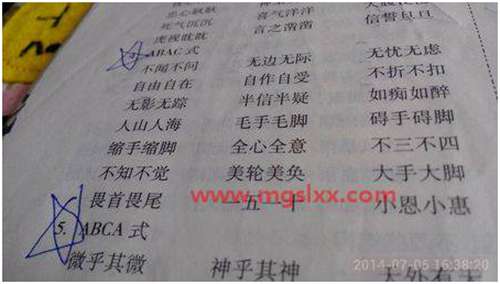 忠心耿耿
死气沉沉 喜气洋洋
虎视眈眈 言之凿凿 信誓旦旦
ABAC 式
不闻不问 无边无际 无忧无虑
自由自在 自作自受 不折不扣
无影无踪 半信半疑 如痴如醉
人山人海 毛手毛脚 碍手碍脚
缩手缩脚 全心全意 不三不四
不知不觉 美轮美奂 大手大脚
www.mgslxx.com
畏首畏尾 一五一十 小恩小惠
5. ABCA 式
微乎其微 神乎其神 天外有天
2014-07-05 16:38:20